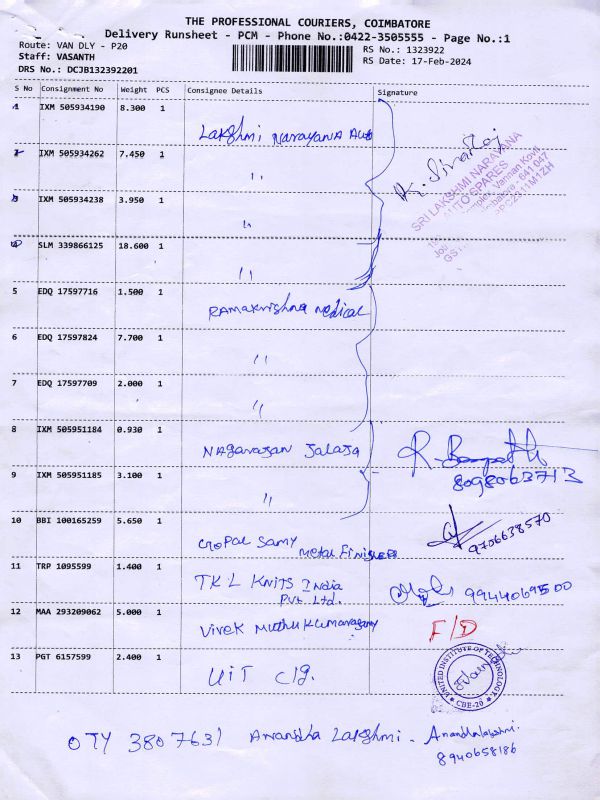 THE PROFESSIONAL COURIERS, COIMBATORE
Delivery Runsheet - PCM - Phone No.:0422-3505555 - Page No.:1
Route: VAN DLY - P20
RS No.: 1323922
Staff: VASANTH
RS Date: 17-Feb-2024
DRS No.: DCJB132392201
S No Consignment No Weight PCS Consignee Details Signature
1 IXM 505934190 8.300 1
Lakshmi Narayana Auto
2 IXM 505934262 7.450 1
"
3 IXM 505934238 3.950 1
"
SRI LAKSHMI NARAYANA
AUTO SPARES
4 SLM 339866125 18.600 1
"
5 EDQ 17597716 1.500 1
Ramakrishna Medical
6 EDQ 17597824 7.700 1
"
7 EDQ 17597709 2.000 1
"
8 IXM 505951184 0.930 1
Nagarajan Jalaja
8098063713
9 IXM 505951185 3.100 1
"
10 BBI 100165259 5.650 1
Gopal Samy Metal Finisher
9706638570
11 TRP 1095599 1.400 1
TKL Knits India
Pvt. Ltd.
12 MAA 293209062 5.000 1
Vivek Muthukumarasamy
F/D
13 PGT 6157599 2.400 1
UIT clg.
UNITED INSTITUTE OF TECHNOLOGY
CBE-20
OTY 3807631 Anandha Lakshmi - Anandhalakshmi.
8940658186